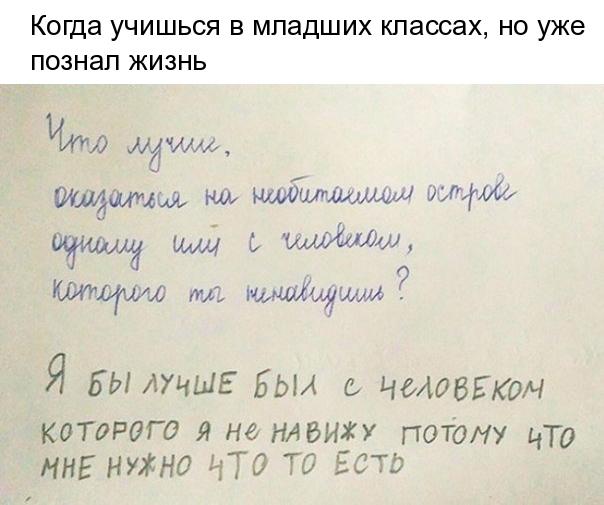 Когда учишься в младших классах, но уже
познал жизнь
Что лучше,
оказаться на необитаемом острове
одному или с человеком,
которого ты ненавидишь?
Я БЫ ЛУЧШЕ БЫЛ с ЧеЛОВЕКОМ
КОТОРОГО Я Не НАВИЖУ ПОТОМУ ЧТО
МНЕ НУЖНО ЧТО ТО ЕСТЬ